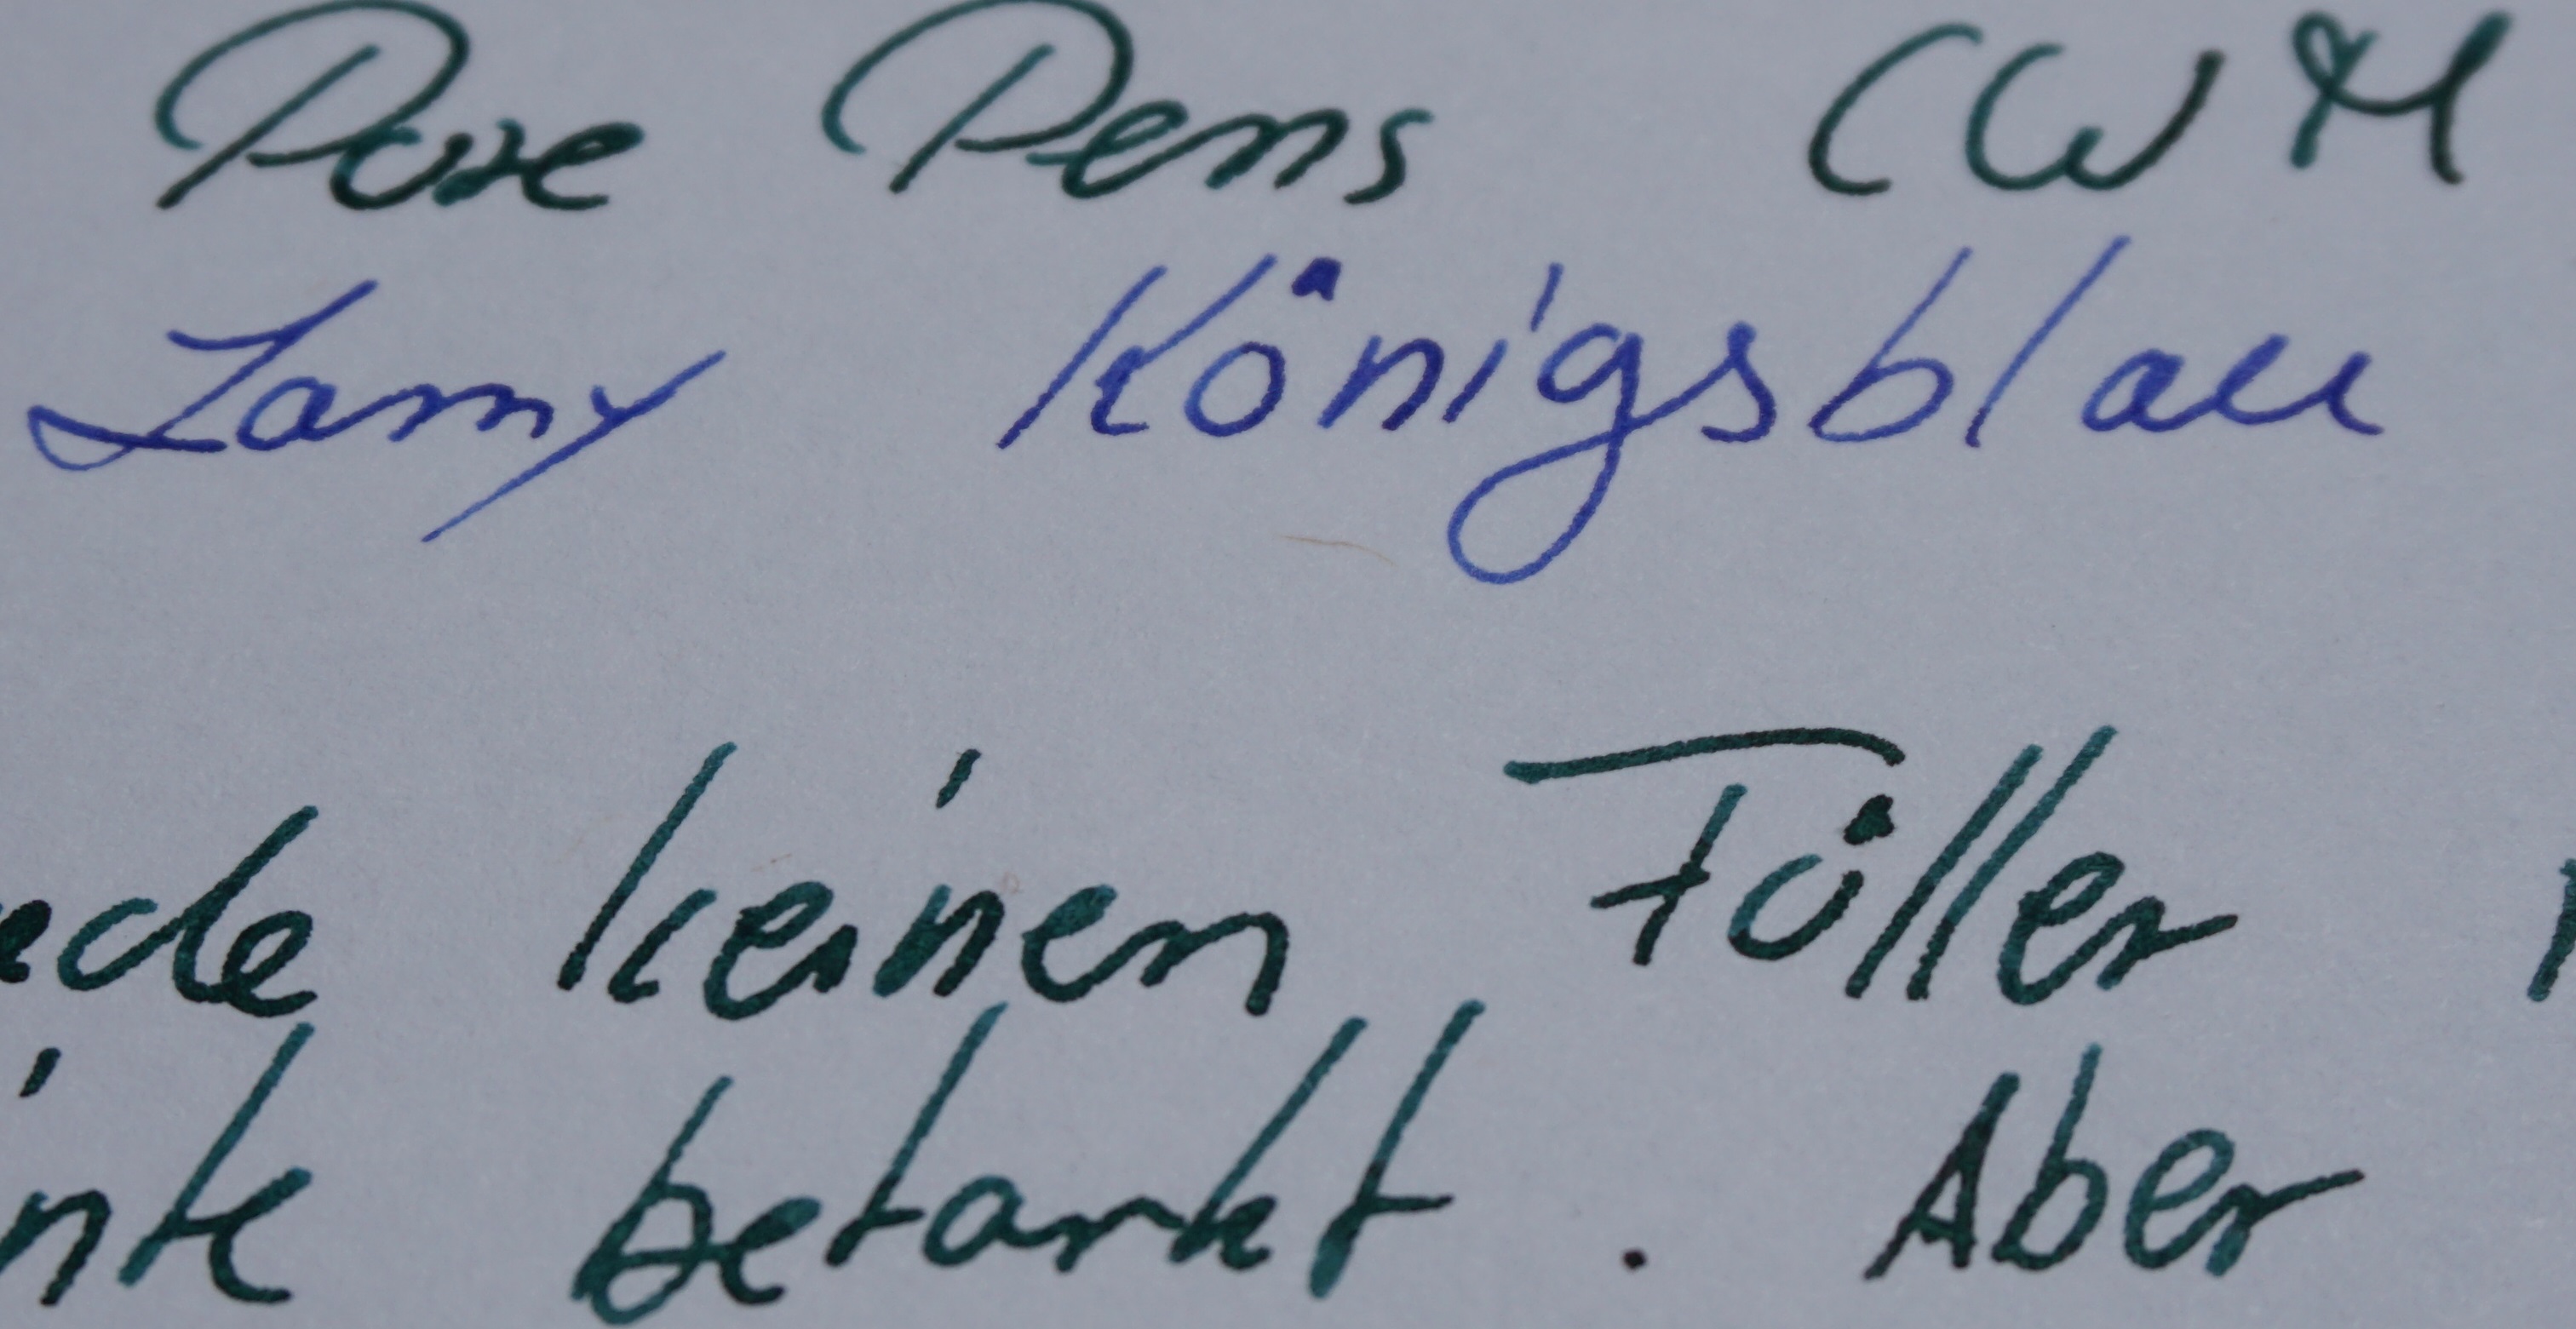 Pure Pens CWM
Lamy Königsblau
de keinen Füller
nte betankt. Aber